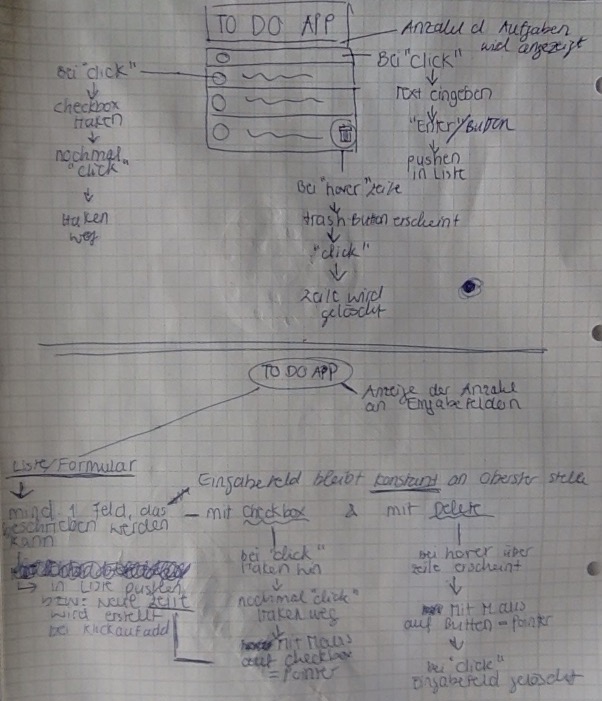 TO DO APP
Anzahl d Aufgaben
wird angezeigt
Bei "click"
Text eingeben
"Enter"/Button
pushen
in Liste
Bei "click"
checkbox
Haken
nochmal
"click"
Haken
weg
Bei "hover" Zeile
trash Button erscheint
"click"
Zeile wird
gelöscht
TO DO APP
Anzeige der Anzahl
an Eingabefeldern
Liste/Formular
mind 1 Feld, das
beschrieben werden
kann
in Liste pushen
bzw. neue Zeile
wird erstellt
bei Klick auf add
Eingabefeld bleibt konstant an oberster Stelle
mit Checkbox & mit Delete
bei "click"
Haken hin
nochmal "click"
Haken weg
Mit Maus
auf checkbox
= Pointer
bei hover über
Zeile erscheint
Mit Maus
auf Button = Pointer
bei "click"
Eingabefeld gelöscht